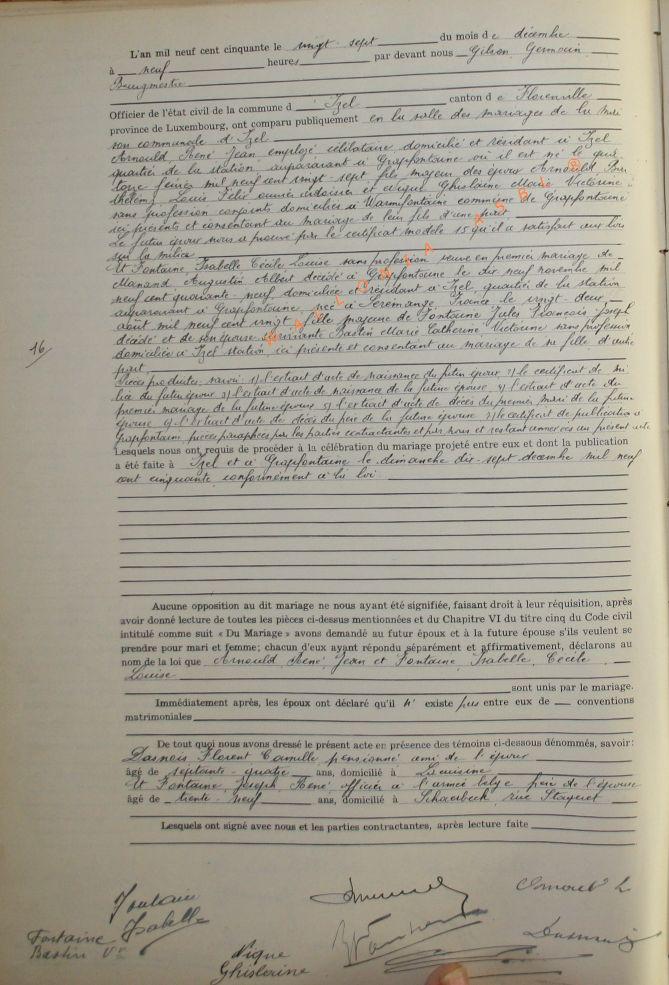 L'an mil neuf cent cinquante le vingt-sept du mois de décembre
à neuf heures par devant nous Gilson Germain
Bourgmestre
Officier de l'état civil de la commune d'Izel canton de Florenville
province de Luxembourg, ont comparu publiquement en la salle des mariages de la mai
son communale d'Izel
Arnould René Jean employé célibataire domicilié et résidant à Izel
quartier de la station auparavant à Grapfontaine où il est né le qua
torze février mil neuf cent vingt-sept fils majeur des époux Arnould
Louis Félix ouvrier ardoisier et Nique Ghislaine Marie Victorine
sans profession conjoints domiciliés à Warmifontaine commune de Grapfontaine
ici présents et consentant au mariage de leur fils d'une part
Le futur époux nous a prouvé par le certificat modèle 15 qu'il a satisfait aux lois
sur la milice
Et Fontaine, Isabelle Cécile Louise sans profession veuve en premier mariage de
Manand, Augustin Albert décédé à Grapfontaine le dix neuf novembre mil
neuf cent quarante-neuf domiciliée et résidant à Izel, quartier de la station
auparavant à Grapfontaine, née à Seremange, France le vingt-deux
août mil neuf cent vingt fille majeure de Fontaine Jules François Joseph
décédé et de son épouse survivante Bastin Marie Catherine Victorine sans profession
domiciliée à Izel station, ici présente et consentant au mariage de sa fille d'autre
part
16
Pièces produites, savoir: 1) l'extrait d'acte de naissance du futur époux 2) le certificat de mi
lice du futur époux 3) l'extrait d'acte de naissance de la future épouse 4) l'extrait d'acte du
premier mariage de la future épouse 5) l'extrait d'acte de décès du premier mari de la future
épouse 6) l'extrait d'acte de décès du père de la future épouse 7) le certificat de publication à
Grapfontaine, pièces paraphées par les parties contractantes et par nous et restant annexées au présent acte
Lesquels nous ont requis de procéder à la célébration du mariage projeté entre eux et dont la publication
a été faite à Izel et à Grapfontaine le dimanche dix-sept décembre mil neuf
cent cinquante conformément à la loi
Aucune opposition au dit mariage ne nous ayant été signifiée, faisant droit à leur réquisition, après
avoir donné lecture de toutes les pièces ci-dessus mentionnées et du Chapitre VI du titre cinq du Code civil
intitulé comme suit « Du Mariage » avons demandé au futur époux et à la future épouse s'ils veulent se
prendre pour mari et femme; chacun d'eux ayant répondu séparément et affirmativement, déclarons au
nom de la loi que Arnould René Jean et Fontaine, Isabelle, Cécile
Louise
sont unis par le mariage.
Immédiatement après, les époux ont déclaré qu'il n' existe pas entre eux de conventions
matrimoniales
De tout quoi nous avons dressé le présent acte en présence des témoins ci-dessous dénommés, savoir:
Dasnois, Florent Camille pensionné ami de l'époux
âgé de septante-quatre ans, domicilié à
Et Fontaine, Joseph René officier à l'armée belge frère de l'épouse
âgé de trente-neuf ans, domicilié à Schaerbeek rue
Lesquels ont signé avec nous et les parties contractantes, après lecture faite
Fontaine
Isabelle
Fontaine
Bastin Vve
Nique
Ghislaine